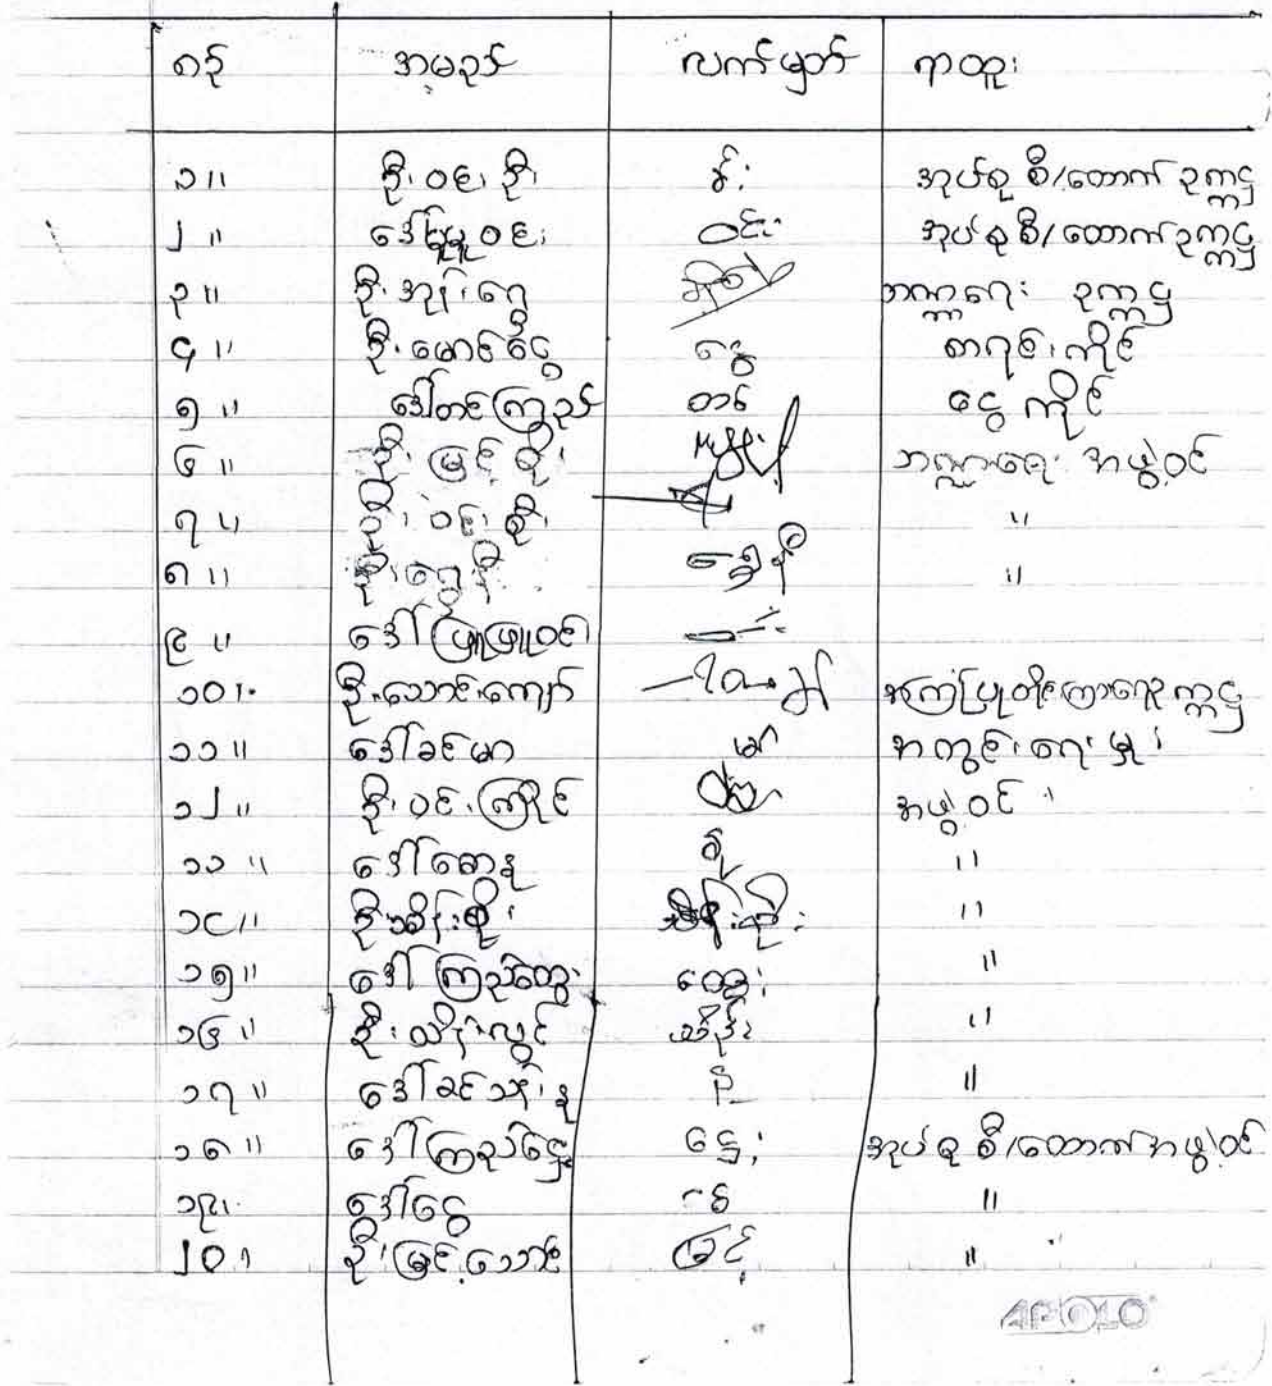 စဉ် အမည် လက်မှတ် ရာထူး
၁။ ဦးဝင်းဦး အုပ်စုစီ/ထောက်ဥက္ကဋ္ဌ
၂။ ဒေါ်မူမူဝင်း ဝင်း အုပ်စုစီ/ထောက်ဥက္ကဋ္ဌ
၃။ ဦးအုန်းရွှေ ဘဏ္ဍာရေး ဥက္ကဋ္ဌ
၄။ ဦးမောင်ငွေ ငွေ စာရင်းကိုင်
၅။ ဒေါ်တင်ကြည် တင် ငွေကိုင်
၆။ ဦးမြင့်စိုး ဘဏ္ဍာရေး အဖွဲ့ဝင်
၇။ ဦးဝင်းစိုး ။
၈။ ။
၉။ ဒေါ်ဖြူဖြူဝင်း
၁၀။ ဦးသောင်းကျော် အကြံပြုတိုင်ကြားရေးဥက္ကဋ္ဌ
၁၁။ ဒေါ်ခင်မာ မာ အတွင်းရေးမှူး
၁၂။ ဦးဝင်းကြိုင် အဖွဲ့ဝင်
၁၃။ ဒေါ်ဆွေနု နု ။
၁၄။ ဦးသိန်းစိုး ။
၁၅။ ဒေါ်ကြည်ထွေး ထွေး ။
၁၆။ ဦးထိန်လွင် ။
၁၇။ ဒေါ်ခင်သန်းနု ။
၁၈။ ဒေါ်ကြည်ဌွေး ဌွေး အုပ်စုစီ/ထောက်အဖွဲ့ဝင်
၁၉။ ဒေါ်ငွေ ။
၂၀။ ဦးမြင့်သောင်း မြင့် ။
APOLO